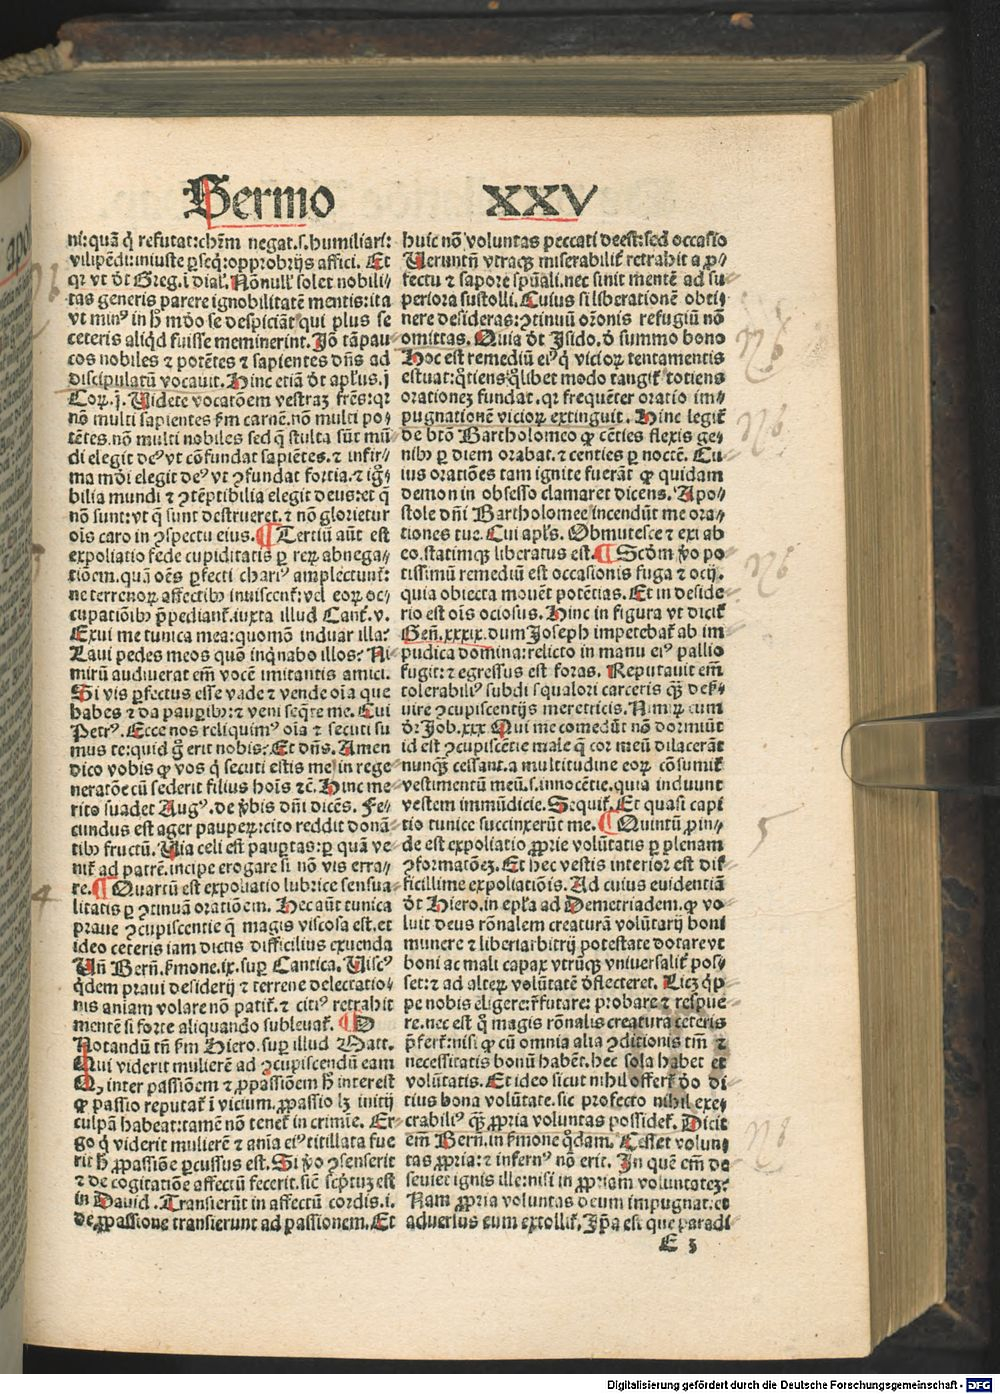 Sermo XXV
ni: quā q̇ refutat: chr̄m negat. s. humiliari:
vilipēdi: iniuste ꝑseq̇: opprobrijs affici. Et
qꝛ vt dt̄ Greg. i dial. Nōnull' solet nobili⸗
tas generis parere ignobilitatē mentis: ita
vt minꝰ in h̄ mdo se despiciāt qui plus se
ceteris aliqd̄ fuisse meminerint. Jō tā pau⸗
cos nobiles ⁊ potētes ⁊ sapientes dn̄s ad
discipulatū vocauit. Hinc etiā dt̄ apl̄us. j
Coꝝ. j. Uidete vocatōem vestraꝫ fr̄es: qꝛ
nō multi sapientes ẜm carnē. nō multi po⸗
tētes. nō multi nobiles sed q̄ stulta sūt mū⸗
di elegit deꝰ vt cōfundat sapiētes. ⁊ infir⸗
ma mōi elegit deꝰ vt ↄfundat fortia. ⁊ iḡ⸗
bilia mundi ⁊ ↄtēptibilia elegit deus: et q̄
nō sunt: vt q̄ sunt destrueret. ⁊ nō glorietur
oīs caro in ↄspectu eius. ¶ Tertiū aūt est
expoliatio fede cupiditatis ꝑ reꝝ abnega⸗
tiōem. quā oēs ꝑfecti chariꝰ amplectunt̄:
ne terrenoꝝ affectibꝰ inuiscent̄: vel eoꝝ oc⸗
cupatiōibꝰ p̄pediant̄. iuxta illud Cant̄. v.
Exui me tunica mea: quomō induar illa?
Laui pedes meos quō inq̇nabo illos? Ni
mirū audiuerat em̄ vocē imitantis amici.
Si vis ꝑfectus esse vade ⁊ vende oīa que
habes ⁊ da pauꝑibꝰ: ⁊ veni seq̄re me. Cui
Petrꝰ. Ecce nos reliquimꝰ oīa ⁊ secuti su
mus te: quid g̊ erit nobis? Et dn̄s. Amen
dico vobis ꝙ vos q̇ secuti estis me in rege
neratōe cū sederit filius hoīs ⁊c̄. Hinc me⸗
rito suadet Augꝰ. de ꝟbis dn̄i dicēs. Fe⸗
cundus est ager pauperꝝ: cito reddit donā⸗
tibꝰ fructū. Uia celi est pauꝑtas: ꝑ quā ve⸗
nit̄ ad patrē. incipe erogare si nō vis erra⸗
re. ¶ Quartū est expoliatio lubrice sensua⸗
litatis ꝑ ↄtinuā oratiōem. Hec aūt tunica
praue ↄcupiscentie q̄ magis viscosa est. et
ideo ceteris iam dictis difficilius exuenda
Un̄ Bern̄. ẜmone. ix. suꝑ Cantica. Uiscꝰ
q̇dem praui desiderij ⁊ terrene delectatio⸗
nis aniam volare nō patit̄. ⁊ citiꝰ retrahit
mentē si forte aliquando subleuat̄. ¶ D
Notandū tn̄ ẜm Hiero. suꝑ illud Matt.
Qui viderit mulierē ad ↄcupiscendū eam
Qꝫ inter passiōem ⁊ ꝓpassiōem h̄ interest
ꝙ passio reputat̄ i vicium. ꝓpassio lꝫ initij
culpā habeat: tamē nō tenet̄ in crimīe. Er⸗
go q̇ viderit mulierē ⁊ ania eiꝰ titillata fue
rit h̄ ꝓpassiōe ꝑcussus est. Si ꝟo ↄsenserit
⁊ de cogitatiōe affectū fecerit. sic̄ sc̄ptuꝫ est
in Dauid. Transierūt in affectū cordis. i.
de ꝓpassione transierunt ad passionem. Et
huic nō voluntas peccati deest: sed occasio
Ueruntn̄ vtraqꝫ miserabilit̄ retrahit a ꝓ⸗
fectu ⁊ sapore spūali. nec sinit mentē ad su
periora sustolli. Cuius si liberationē obti⸗
nere desideras: ↄtinuū or̄onis refugiū nō
omittas. Quia dt̄ Jsido. d̄ summo bono
Hoc est remediū eiꝰ q̇ vicioꝝ tentamentis
estuat: q̊tiens q̊libet modo tangit̄ totiens
orationeꝫ fundat. qꝛ frequēter oratio im⸗
pugnationē vicioꝝ extinguit. Hinc legit̄
de btō Bartholomeo ꝙ cēties flexis ge⸗
nibꝰ ꝑ diem orabat. ⁊ centies ꝑ noctē. Cu
ius oratiōes tam ignite fuerāt ꝙ quidam
demon in obsesso clamaret dicens. Apo⸗
stole dn̄i Bartholomee incendūt me ora⸗
tiones tue. Cui apl̄s. Obmutesce ⁊ exi ab
eo. statimqꝫ liberatus est. ¶ Scd̄m ꝟo po
tissimū remediū est occasionis fuga ⁊ ocij.
quia obiecta mouēt potētias. Et in deside⸗
rio est oīs ociosus. Hinc in figura vt dicit̄
Gen̄. xxxix. dum Joseph impetebat̄ ab im
pudica domina: relicto in manu eiꝰ pallio
fugit: ⁊ egressus est foras. Reputauit em̄
tolerabiliꝰ subdi squalori carceris q̄ꝫ des̄⸗
uire ↄcupiscentijs meretricis. Namqꝫ cum
dr̄ Job. xxx. Qui me comedūt nō dormiūt
id est ↄcupiscētie male q̄ cor meū dilacerāt
nunqꝫ cessant. a multitudine eoꝝ cōsumit̄
vestimentū meū. s. innocētie. quia induunt
vestem immūdicie. Sequit̄. Et quasi capi
tio tunice succinxerūt me. ¶ Quintū ꝓin⸗
de est expoliatio ꝓprie volūtatis ꝑ plenam
ↄformatōeꝫ. Et hec vestis interior est dif⸗
ficillime expoliatiōis. Ad cuius euidentiā
dt̄ Hiero. in epl̄a ad Demetriadem. ꝙ vo⸗
luit deus rōnalem creaturā volūtarij boni
munere ⁊ liberi arbitrij potestate dotare vt
boni ac mali capax vtrūqꝫ vniuersalit̄ pos⸗
set: ⁊ ad alteꝝ volūtatē d̄flecteret. Licꝫ q̇p⸗
pe nobis eligere: r̄futare: probare ⁊ respue⸗
re. nec est q̊ magis rōnalis creatura ceteris
p̄fert̄: nisi ꝙ cū omnia alia ↄditionis tm̄ ⁊
necessitatis bonū habēt. hec sola habet et
volūtatis. Et ideo sicut nihil offert̄ d̄o di⸗
tius bona volūtate. sic profecto nihil exe⸗
crabiliꝰ q̄ꝫ ꝓpria voluntas possidet̄. Dicit
em̄ Bern̄. in ẜmone q̊dam. Cesset volun⸗
tas ꝓpria: ⁊ infernꝰ nō erit. Jn quē em̄ de
seuiet ignis ille: nisi in ꝓpriam voluntateꝫ?
Nam ꝓpria voluntas deum impugnat: et
aduersus eum extollit̄. Jp̄a est que paradi⸗
E 3
4
5
Digitalisierung gefördert durch die Deutsche Forschungsgemeinschaft - DFG